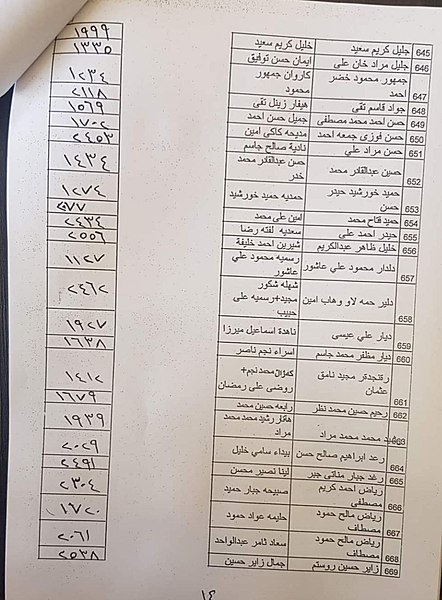 645 جليل كريم سعيد خليل كريم سعيد ١٩٩٩
646 جليل مراد خان علي ايمان حسن توفيق ١٣٣٥
647 جمهور محمود خضر احمد كاروان جمهور محمود ١٢٣٤
648 جواد قاسم تقي هيفار زينل تقى ٢١١٨
649 حسن احمد محمد مصطفى جميل حسن احمد ١٥٦٩
650 حسن فوزى جمعه احمد مديحه كاكي امين ١٧٠٢
651 حسن مراد علي نادية صالح جاسم ٢٤٥٣
652 حسين عبدالقادر محمد حسن عبدالقادر محمد خدر ١٤٣٤
653 حميد خورشيد حيدر حسن حمديه حميد خورشيد ١٢٧٤
654 حميد فتاح محمد امين على محمد ٢٠٧٧
655 حيدر احمد علي سعديه لفته رضا ٢٤٣٤
656 خليل ظاهر عبدالكريم شيرين احمد خليفة ٢٥٥٦
657 دلدار محمود علي عاشور رسميه محمود علي عاشور ١١٢٧
658 دلير حمه لاو وهاب امين شهله شكور مجيد+رسميه على حبيب ٢٤٦٢
659 ديار علي عيسى ناهدة اسماعيل ميرزا ١٩٢٧
660 ديار مظفر محمد جاسم اسراء نجم ناصر ١٦٣٨
661 مجيد نامق عثمان محمد نجم+ روضى على رمضان ١٤١٢
662 رحيم حسين محمد نظر رابعه حسين محمد ١٦٧٩
663 رشيد محمد محمد مراد رشيد محمد محمد مراد ١٩٣٩
664 رعد ابراهيم صالح حسن بيداء سامي خليل ٢٠٢٩
665 رغد جبار مناتي جبر لينا نصير محسن ٢٤٩١
666 رياض احمد كريم مصطفى صبيحه جبار حميد ٢٣٠٤
667 رياض مالح حمود مصطاف حليمه عواد حمود ١٧٢٠
668 رياض مالح حمود مصطاف سعاد ثامر عبدالواحد ٢٠٦١
669 زاير حسين روستم جمال زاير حسين ٢٥٣٨
١٤